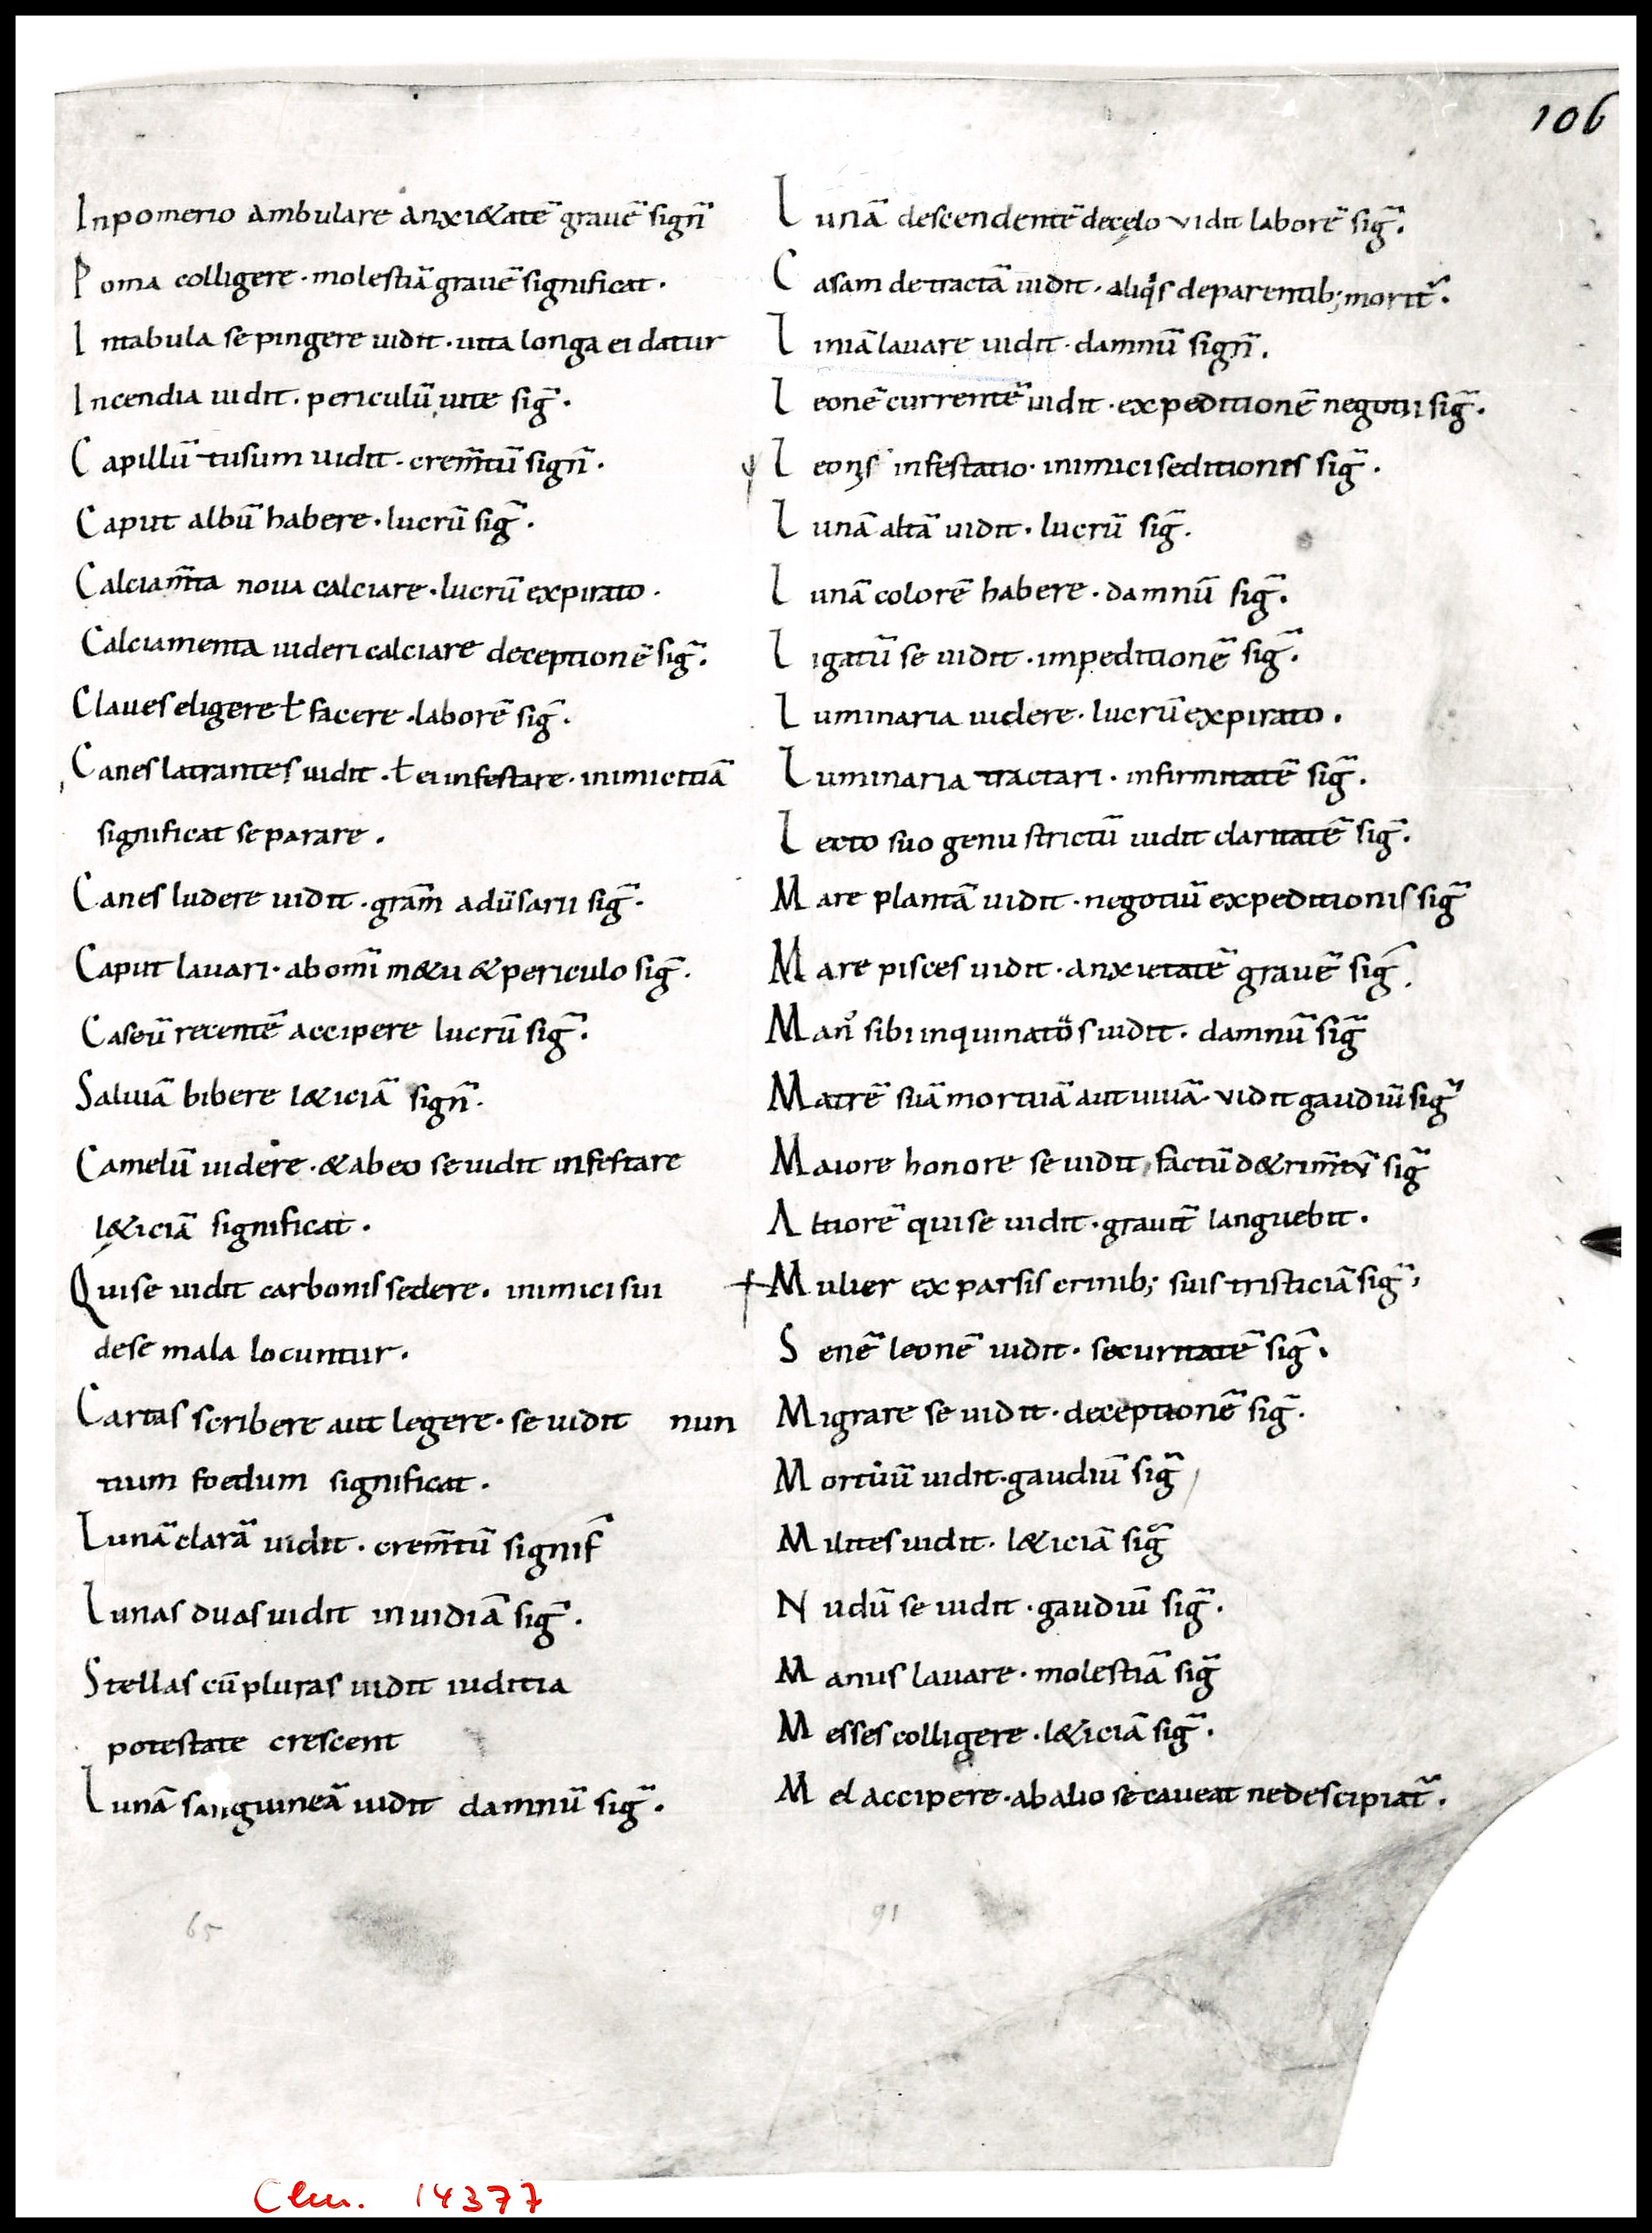 106
Inpomerio ambulare anxi&atē grauē sign̄
Poma colligere · molestiā grauē significat ·
Intabula se pingere uidit · uita longa ei datur
Incendia uidit · periculū uite siḡ ·
Capillū tusum uidit · crem̄tū sign̄ ·
Caput albū habere · lucrū siḡ ·
Calciam̄ta noua calciare · lucrū expirato ·
Calciamenta uideri calciare deceptionē siḡ ·
Claues eligere ł facere · laborē siḡ ·
Canes latrantes uidit · ł ei infestare · inimicitiā
significat separare ·
Canes ludere uidit · gram̄ adūsarii siḡ ·
Caput lauari · abom̄i m&u & periculo siḡ ·
Caseū recentē accipere lucrū siḡ ·
Saliuā bibere l&iciā sign̄ ·
Camelū uidere · & abeo se uidit infestare
l&iciā significat ·
Quise uidit carbonis sedere · inimici sui
dese mala locuntur ·
Cartas scribere aut legere · se uidit nun
tium foedum significat ·
Lunā clarā uidit · crem̄tū signif̄
Lunas duas uidit inuidiā siḡ ·
Stellas cū pluras uidit iuditia
potestate crescent
Lunā sanguineā uidit damnū siḡ ·
Lunā descendentē decęlo vidit laborē siḡ ·
Casam detractā uidit · aliq͛s deparentib; morit̄ ·
Liniā lauare uidit · damnū sign̄ ·
Leonē currentē uidit · expeditionē negotii siḡ ·
Leonis infestatio · inimici seditionis siḡ ·
Lunā altā uidit · lucrū siḡ ·
Lunā colorē habere · damnū siḡ ·
Ligatū se uidit · impeditionē siḡ ·
Luminaria uidere · lucrū expirato ·
Luminaria tractari · infirmitatē siḡ ·
Lecto suo genu strictū uidit claritatē siḡ ·
Mare plantā uidit · negotiū expeditionis siḡ
Mare pisces uidit · anxietatē grauē siḡ ·
Man᷒ sibi inquinatos uidit · damnū siḡ
Matrē suā mortuā aut uiuā vidit gaudiū siḡ
Maiore honore se uidit factū d&rim̄tū siḡ
Altiorē qui se uidit · grauit̄ languebit ·
Mulier exparsis crinib; suis tristiciā siḡ ·
Senē leonē uidit · securitatē siḡ ·
Migrare se uidit · deceptionē siḡ ·
Mortuū uidit · gaudiū siḡ
Milites uidit · l&iciā siḡ
Nudū se uidit · gaudiū siḡ ·
Manus lauare · molestiā siḡ
Messes colligere · l&iciā siḡ ·
Mel accipere · ab alio se caueat ne descipiat̄ ·
65
91
Clm. 14377